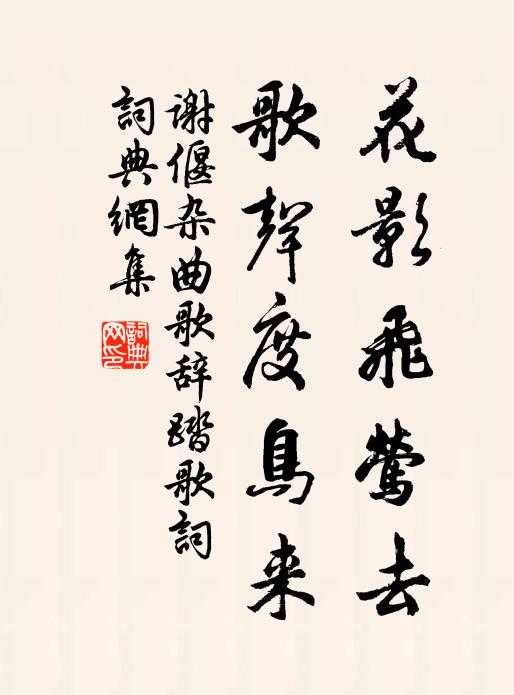 花影飛鶯去
歌聲度鳥来
谢偃杂曲歌辞踏歌詞
詞典網集
詞典网印